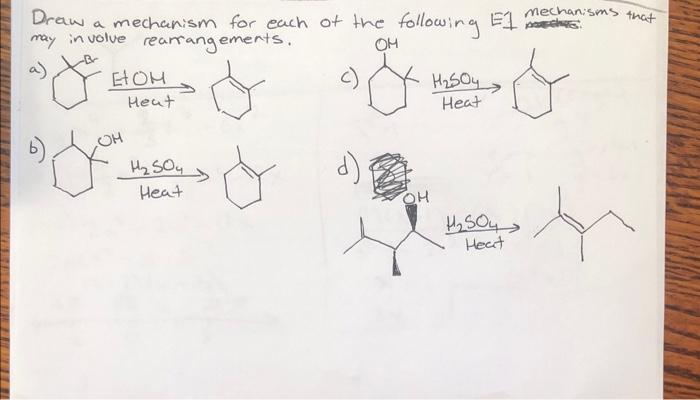 Draw a mechanism for each of the following E1 mechanisms that
may involve rearrangements.
a) Br EtOH Heat
b) OH H2SO4 Heat
c) OH H2SO4 Heat
d) OH H2SO4 Heat